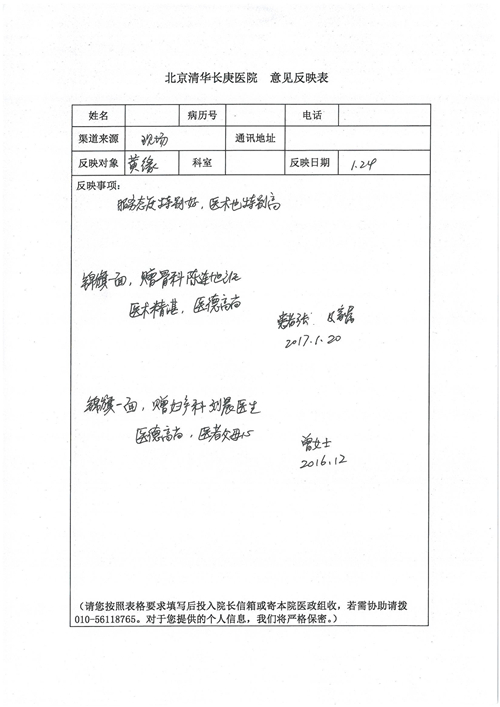 北京清华长庚医院 意见反映表
姓名 病历号 电话
渠道来源 现场 通讯地址
反映对象 黄缘 科室 反映日期 1.24
反映事项:
服务态度特别好，医术也特别高
锦旗一面，赠骨科陈连
医术精湛，医德高尚
患者张 及家属
2017.1.20
锦旗一面，赠妇产科刘晨医生
医德高尚，医者父母心
曾女士
2016.12
（请您按照表格要求填写后投入院长信箱或寄本院医政组收，若需协助请拨
010-56118765。对于您提供的个人信息，我们将严格保密。）